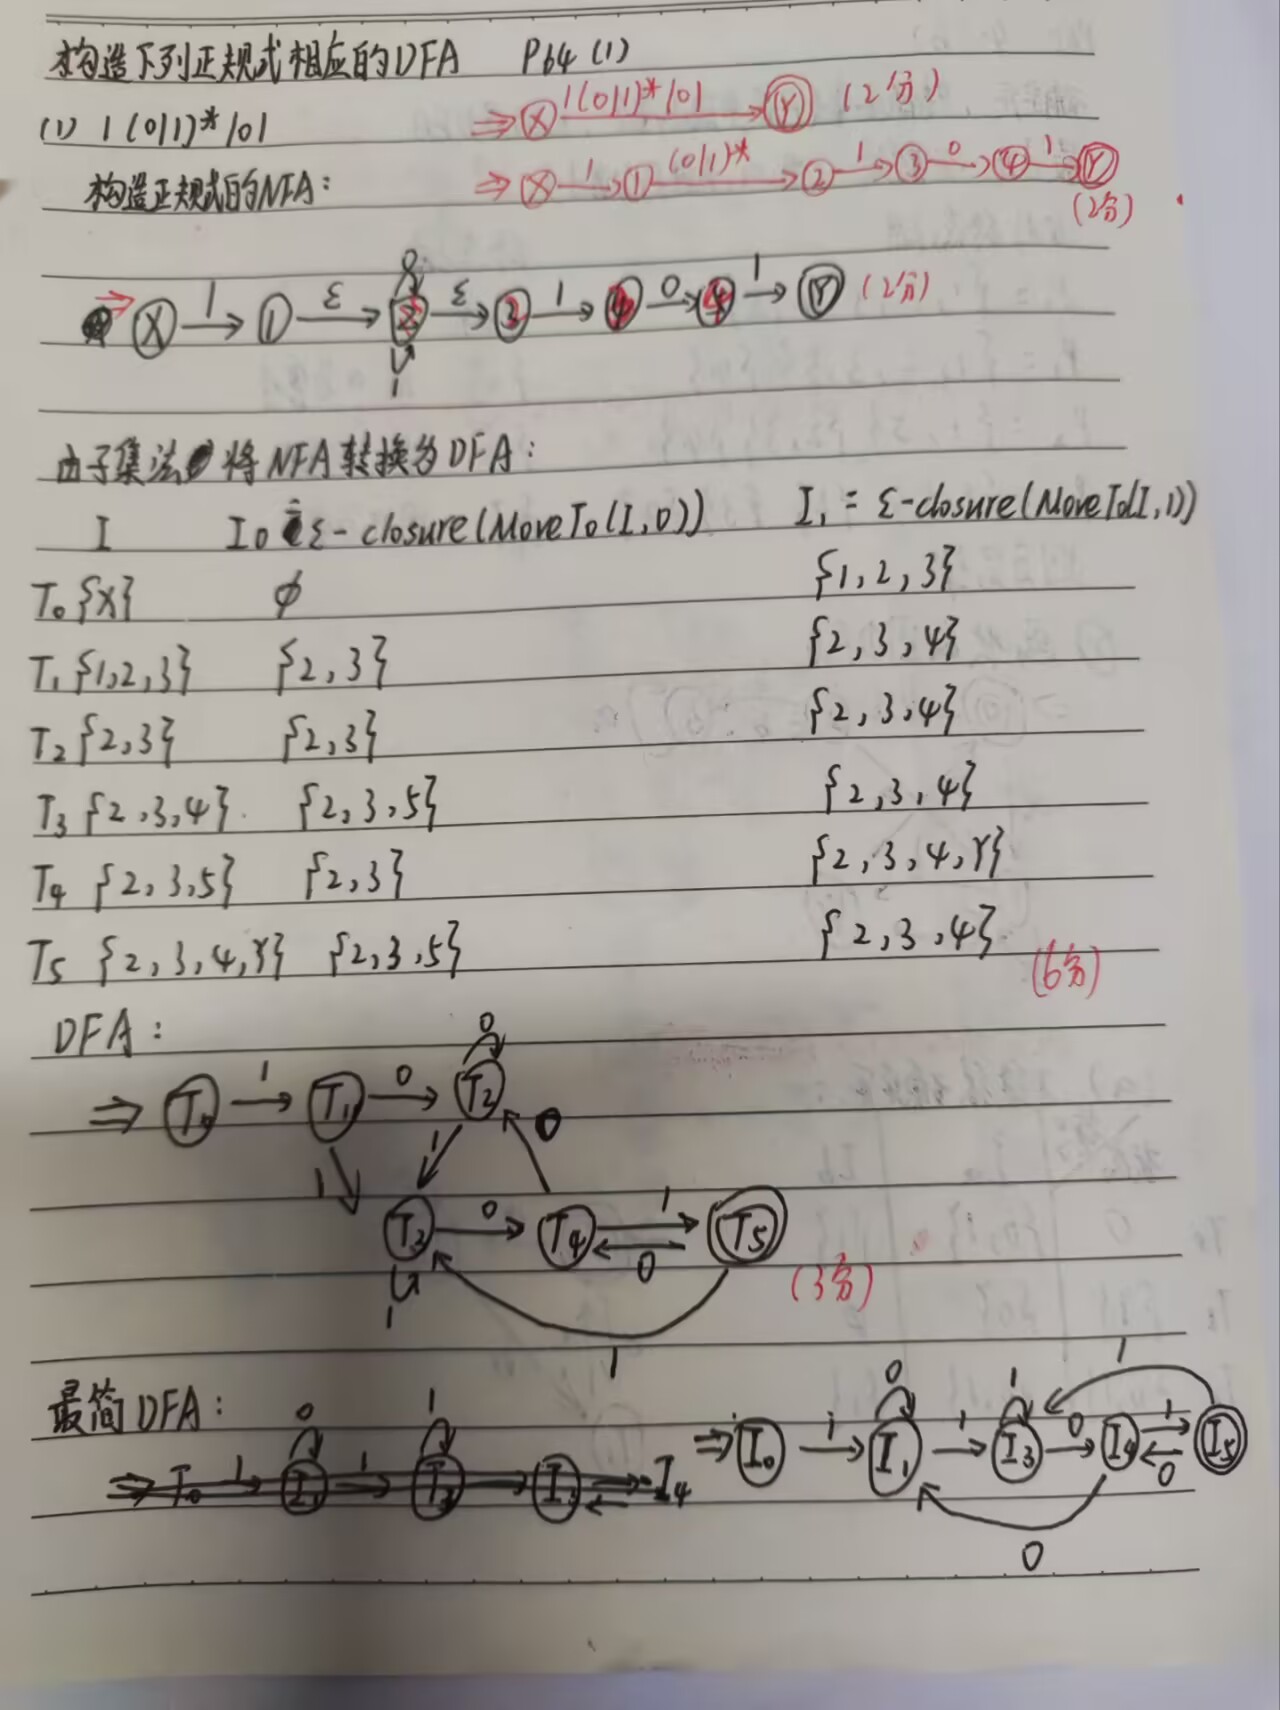 构造下列正规式相应的DFA P64 (1)
(1) 1(0|1)*101
⇒ X 1(0|1)*101 Y (2分)
构造正规式的NFA:
⇒ X 1 1 (0|1)* 2 1 3 0 4 1 Y
(2分)
X 1 1 ε 2 ε 3 1 0 1 Y (2分)
0
1
由子集法将NFA转换为DFA:
I I0 = ε-closure(MoveTo(I,0)) I1 = ε-closure(MoveTo(I,1))
T0 {X} ϕ {1,2,3}
T1 {1,2,3} {2,3} {2,3,4}
T2 {2,3} {2,3} {2,3,4}
T3 {2,3,4} {2,3,5} {2,3,4}
T4 {2,3,5} {2,3} {2,3,4,Y}
T5 {2,3,4,Y} {2,3,5} {2,3,4}
(6分)
DFA:
0
⇒ T0 1 T1 0 T2
1 1 0
T3 0 T4 1 T5
0
1
(3分)
1
最简DFA:
0 1
0 1 1
⇒ I0 1 I1 1 I3 0 I4 1 I5
0
0